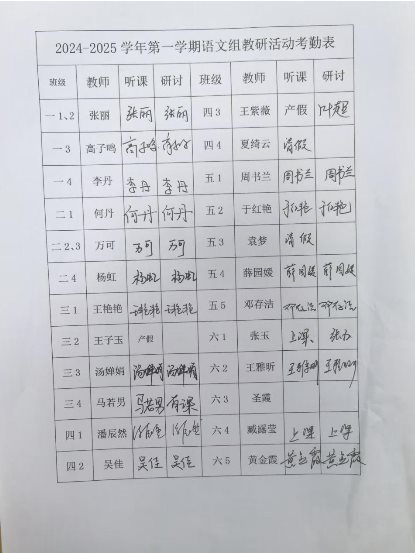 2024-2025 学年第一学期语文组教研活动考勤表
班级 教师 听课 研讨 班级 教师 听课 研讨
一1、2 张丽 张丽 张丽 四3 王紫薇 产假
一3 高子鸣 高子鸣 高子鸣 四4 夏绮云 请假
一4 李丹 李丹 李丹 五1 周书兰 周书兰 周书兰
二1 何丹 何丹 何丹 五2 于红艳
二2、3 万可 万可 万可 五3 袁梦 请假
二4 杨虹 杨虹 杨虹 五4 薛园媛 薛园媛 薛园媛
三1 王艳艳 五5 邓存洁 邓存洁 邓存洁
三2 王子玉 产假 六1 张玉 上课
三3 汤婵娟 汤婵娟 汤婵娟 六2 王雅昕 王雅昕 王雅昕
三4 马若男 马若男 有课 六3 圣霞
四1 潘辰然 六4 臧露莹 上课 上课
四2 吴佳 吴佳 吴佳 六5 黄金霞 黄金霞 黄金霞